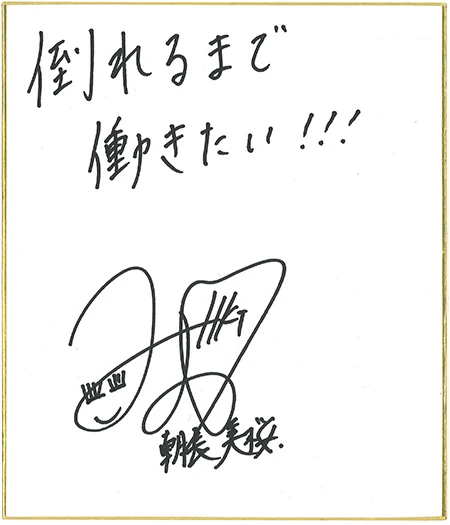 倒れるまで
働きたい!!!
HKT
朝長美桜.